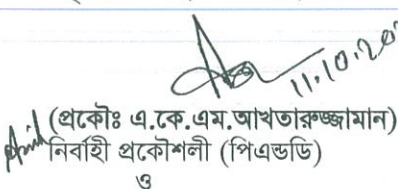 11.10.20
(প্রকৌঃ এ.কে.এম.আখতারুজ্জামান)
নির্বাহী প্রকৌশলী (পিএন্ডডি)
ও